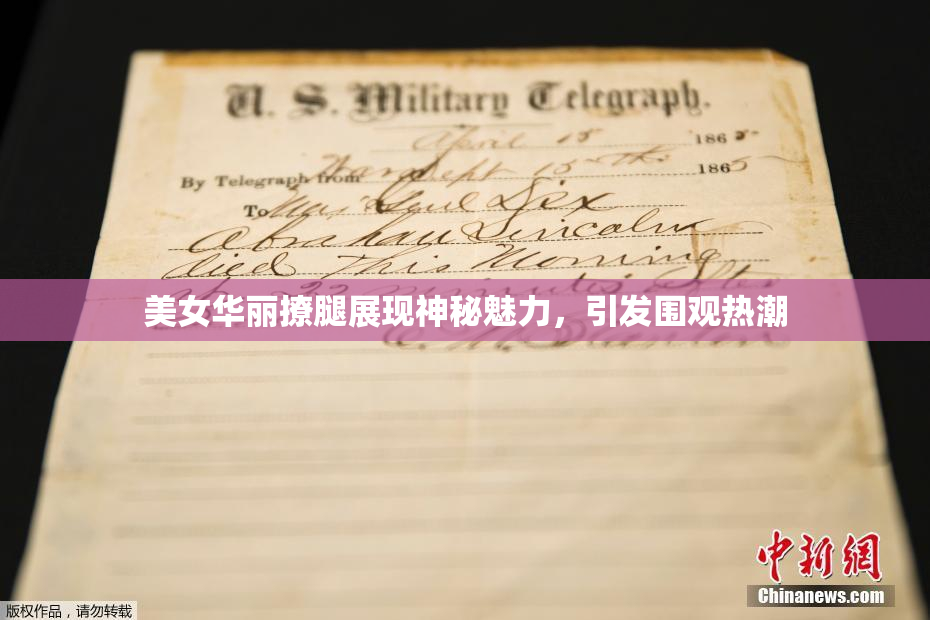 U. S. Military Telegraph.
April 15 1865
By Telegraph from War Dept 15th 1865
To Maj Genl Dix
Abraham Lincoln
died This Morning
22 minutes after
美女华丽撩腿展现神秘魅力，引发围观热潮
E. M. Stanton
中新网
Chinanews.com
版权作品，请勿转载